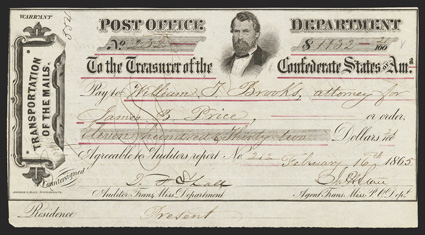 WARRANT
POST OFFICE DEPARTMENT
No. 232 $1132
100
To the Treasurer of the Confederate States of Ama.
Pay to William T. Brooks, attorney for
James B. Price, or order,
Eleven Hundred & Thirty two Dollars
Agreeable to Auditors report No February 16th 1865
Auditor Trans. Miss. Department Agent Trans. Miss. P.O. Dept.
Residence Present
TRANSPORTATION
OF THE MAILS.
Countersigned